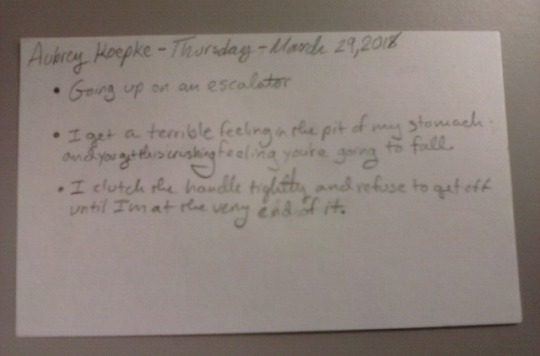 Aubrey Koepke - Thursday - March 29, 2018
• Going up on an escalator
• I get a terrible feeling in the pit of my stomach.
and you get this crushing feeling you're going to fall.
• I clutch the handle tightly and refuse to get off
until I'm at the very end of it.